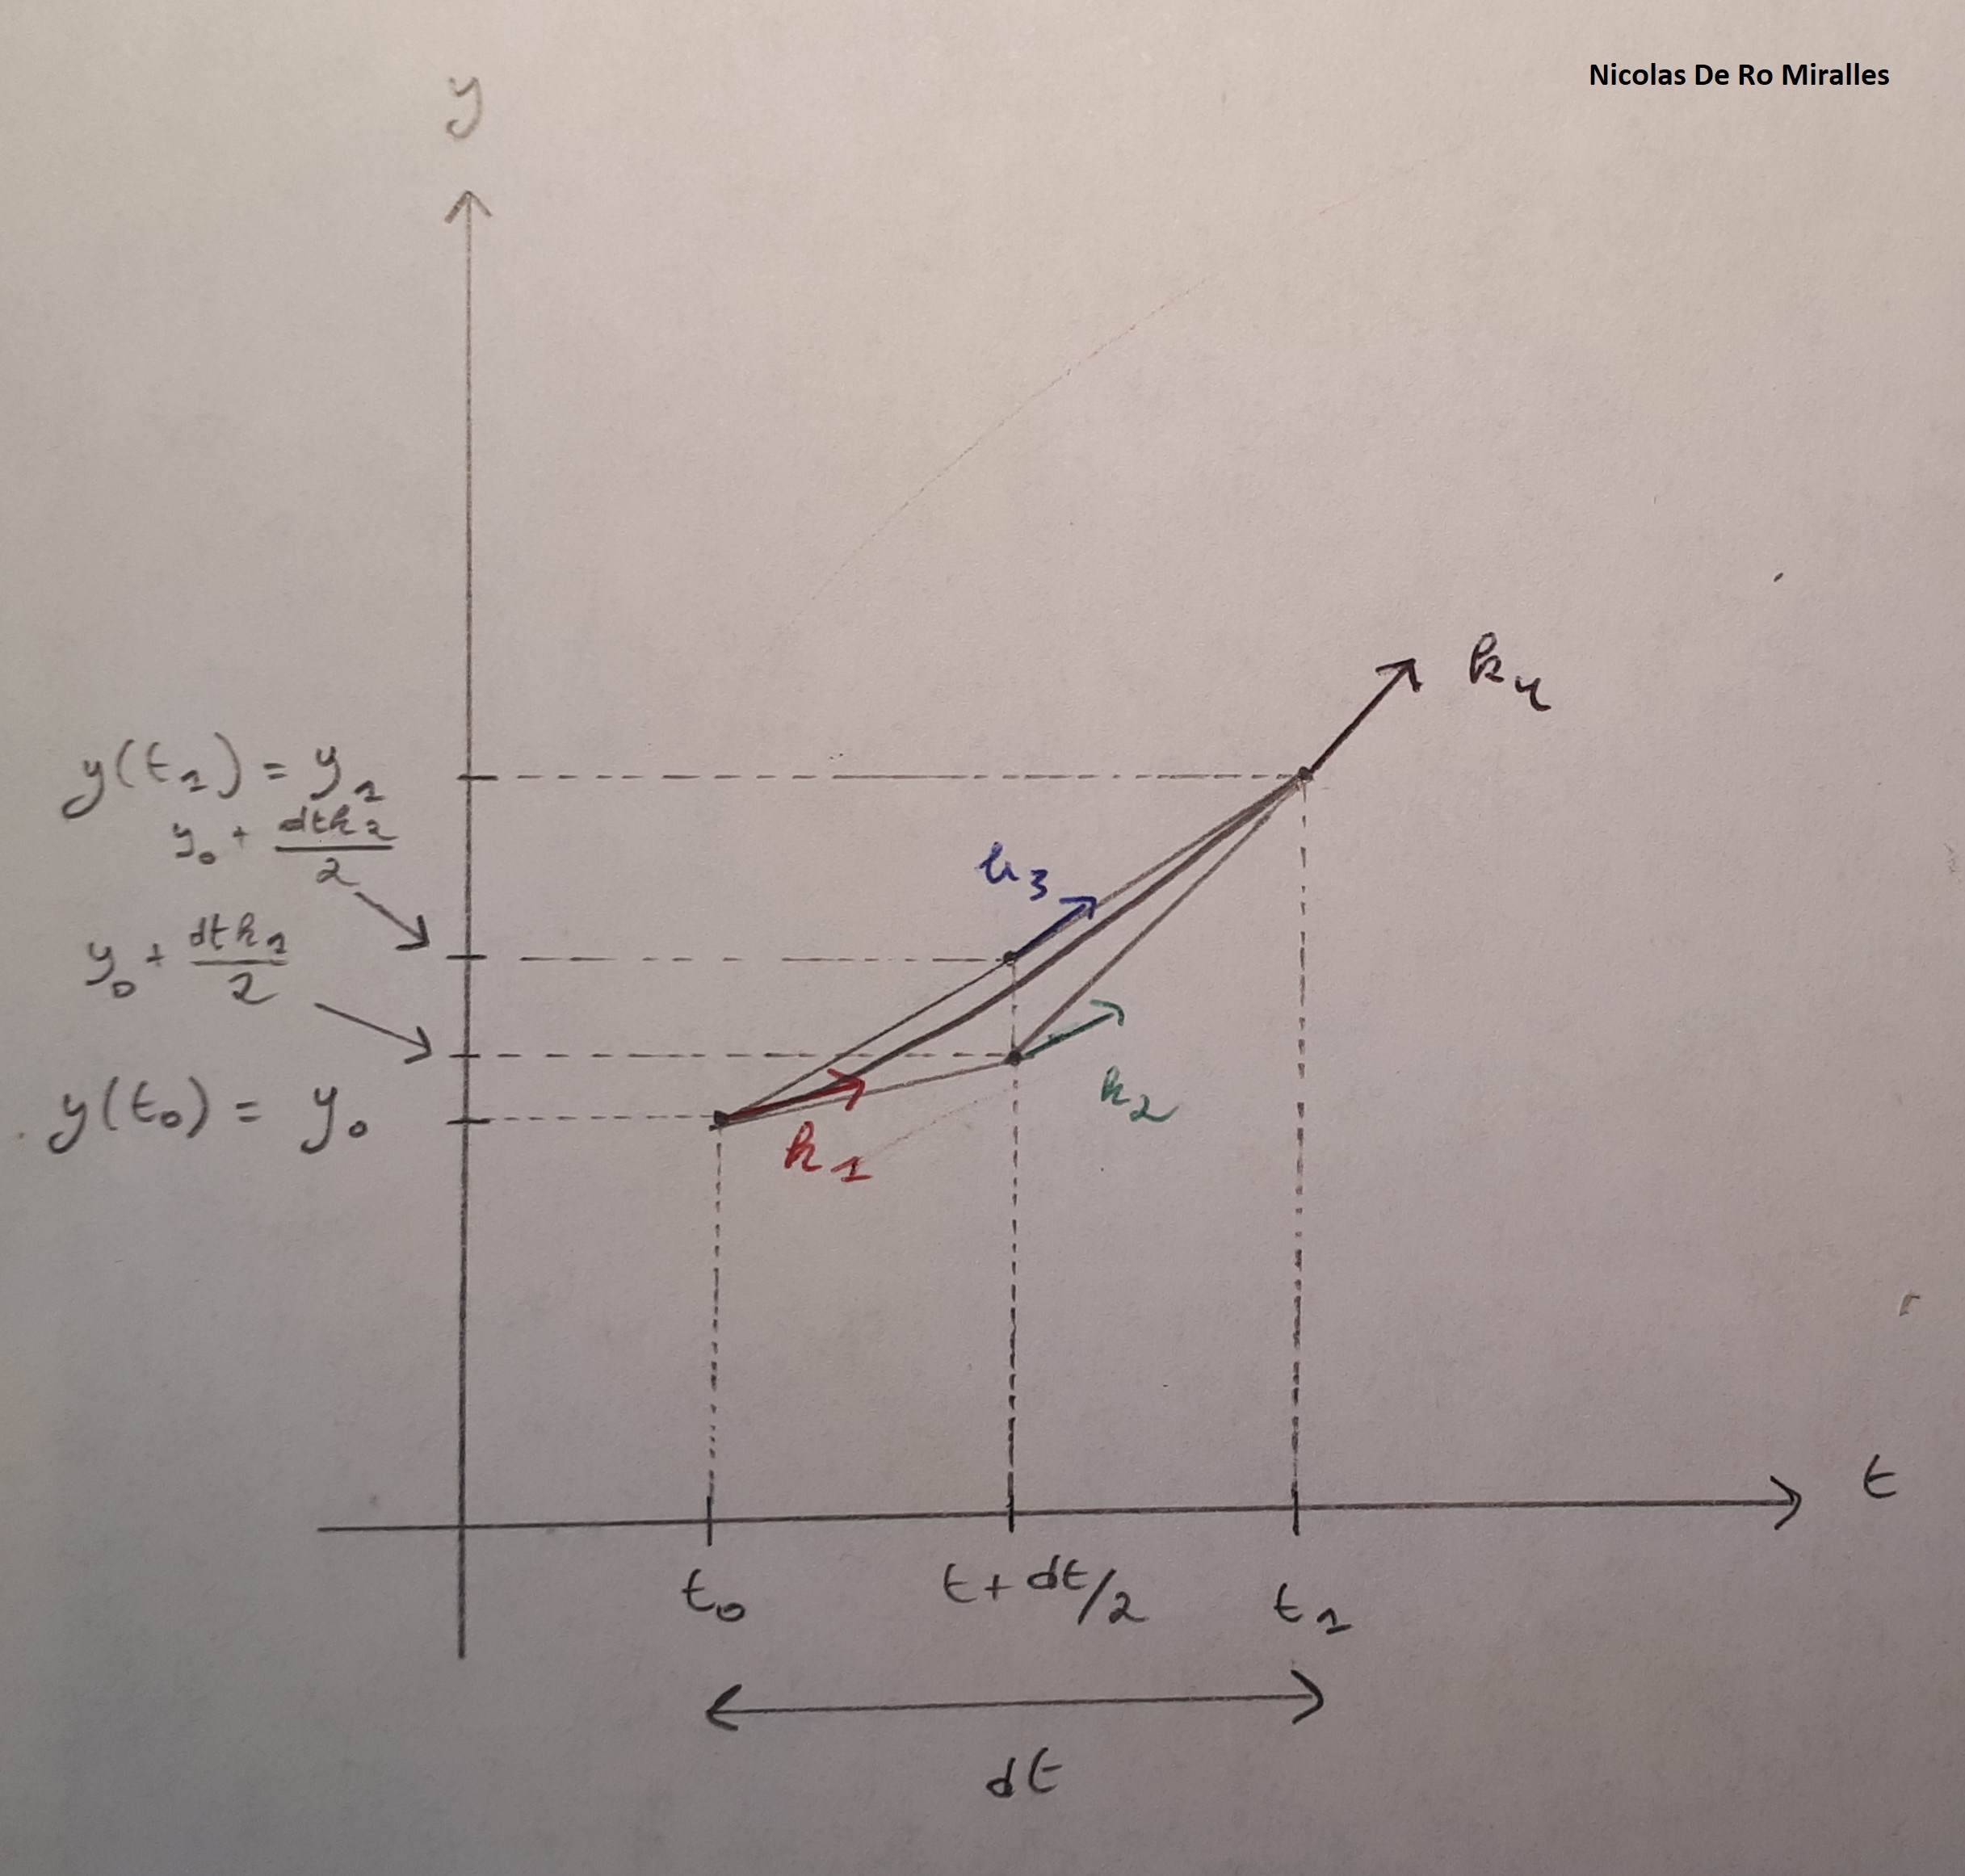 Nicolas De Ro Miralles
y
k₄
y(t₁) = y₁
y₀ + dtk₂/2
k₃
y₀ + dtk₁/2
k₂
y(t₀) = y₀
k₁
t
t₀
t + dt/2
t₁
dt